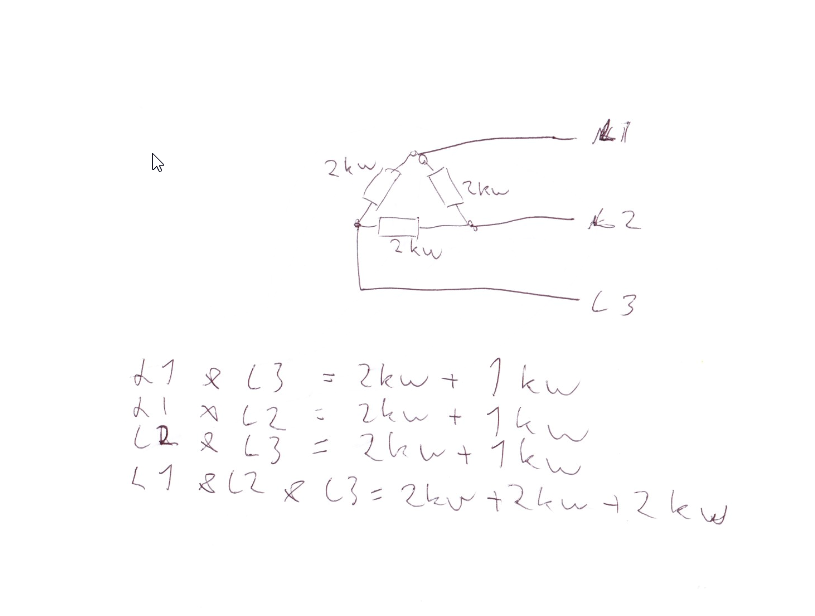 L1
2kw
2kw
L2
2kw
L3
L1 & L3 = 2kw + 1kw
L1 & L2 = 2kw + 1kw
L2 & L3 = 2kw + 1kw
L1 & L2 & L3 = 2kw + 2kw + 2kw